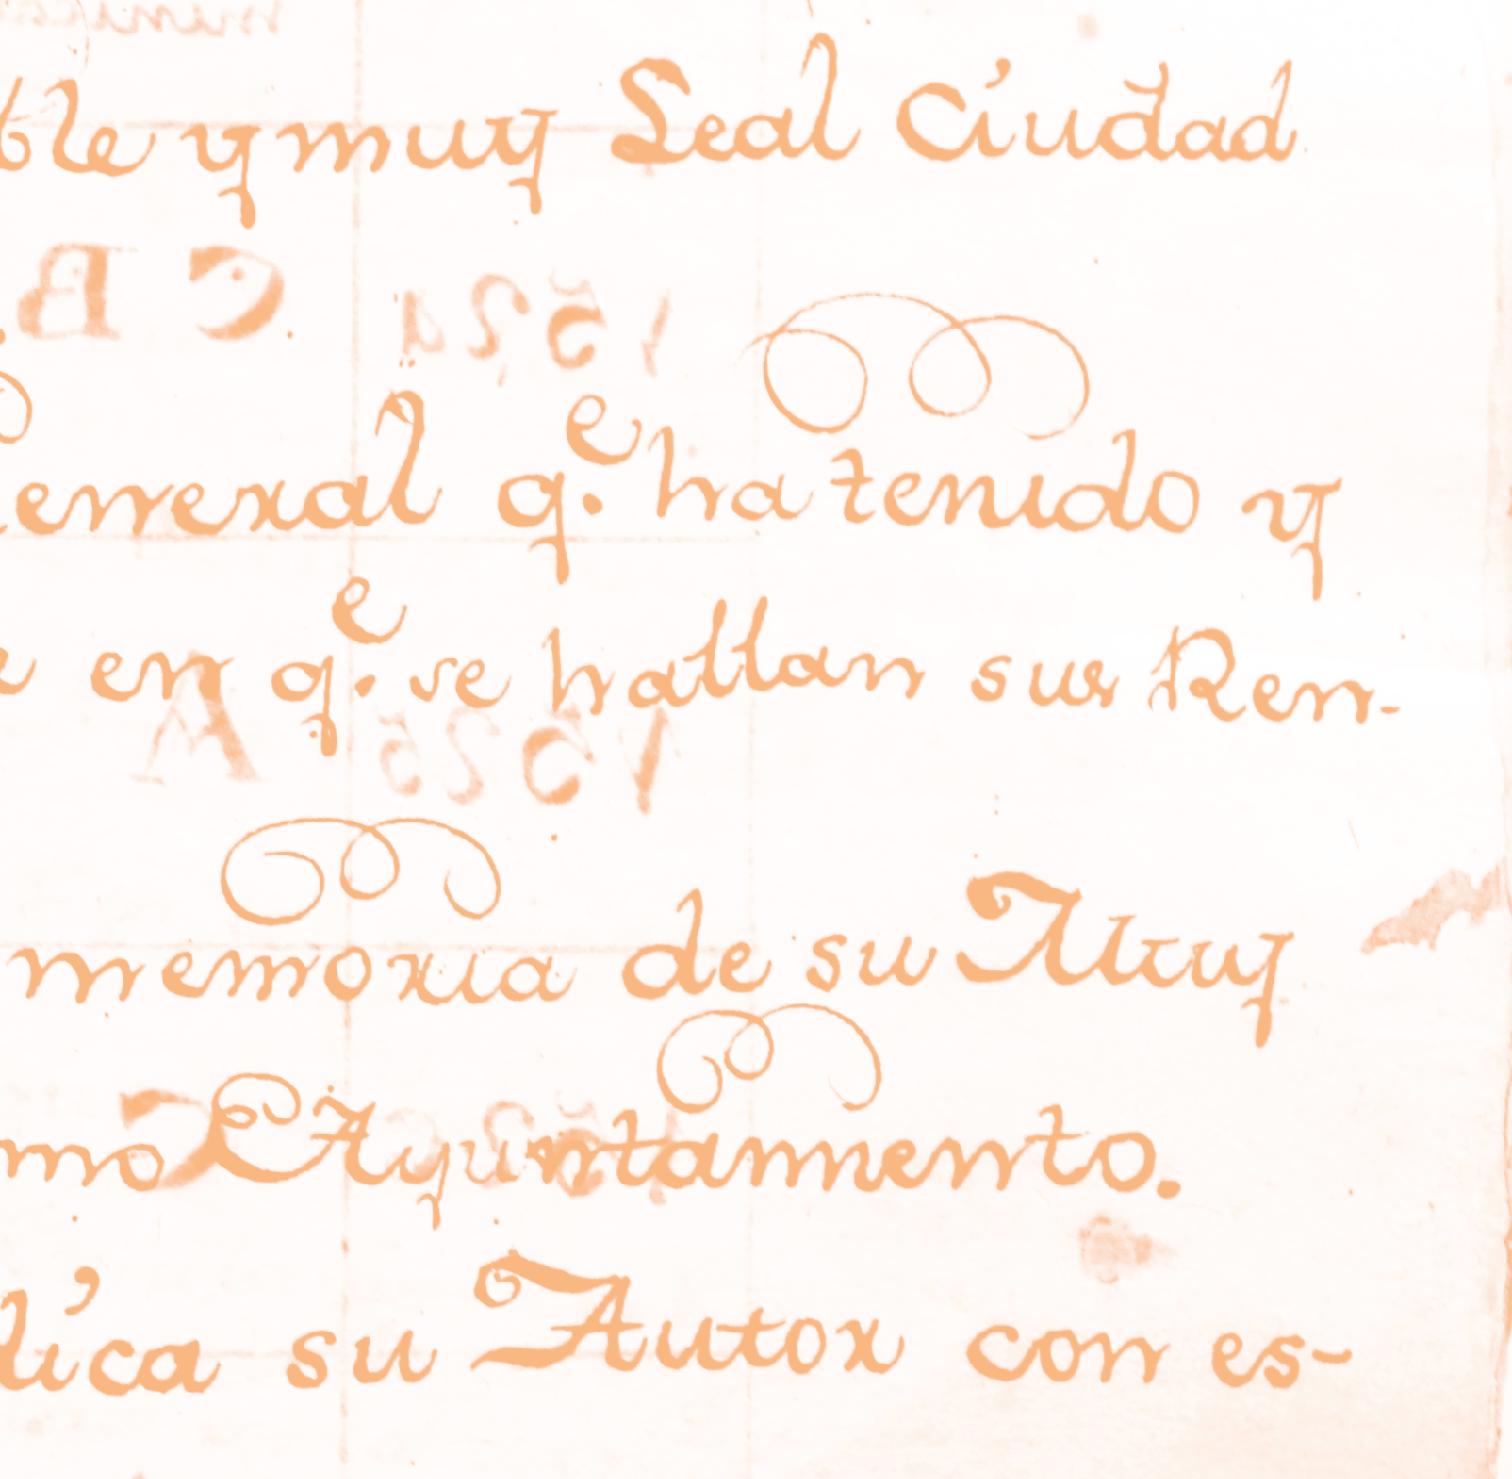 ble y muy Leal Ciudad
enneral q.e ha tenido y
e en q.e se hallan sus Ren-
memoria de su Muy
mo Ayuntamiento.
dica su Autor con es-